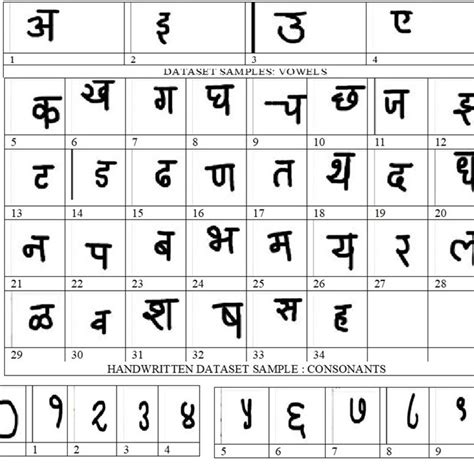 अ इ उ ए
1 2 3 4
DATASET SAMPLES: VOWELS
क ख ग घ च छ ज झ
5 6 7 8 9 10 11 12
ट ड ढ ण त थ द ध
13 14 15 16 17 18 19 20
न प ब भ म य र ल
21 22 23 24 25 26 27 28
ळ व श ष स ह
29 30 31 32 33 34
HANDWRITTEN DATASET SAMPLE : CONSONANTS
० १ २ ३ ४ ५ ६ ७ ८ ९
1 2 3 4 5 6 7 8 9